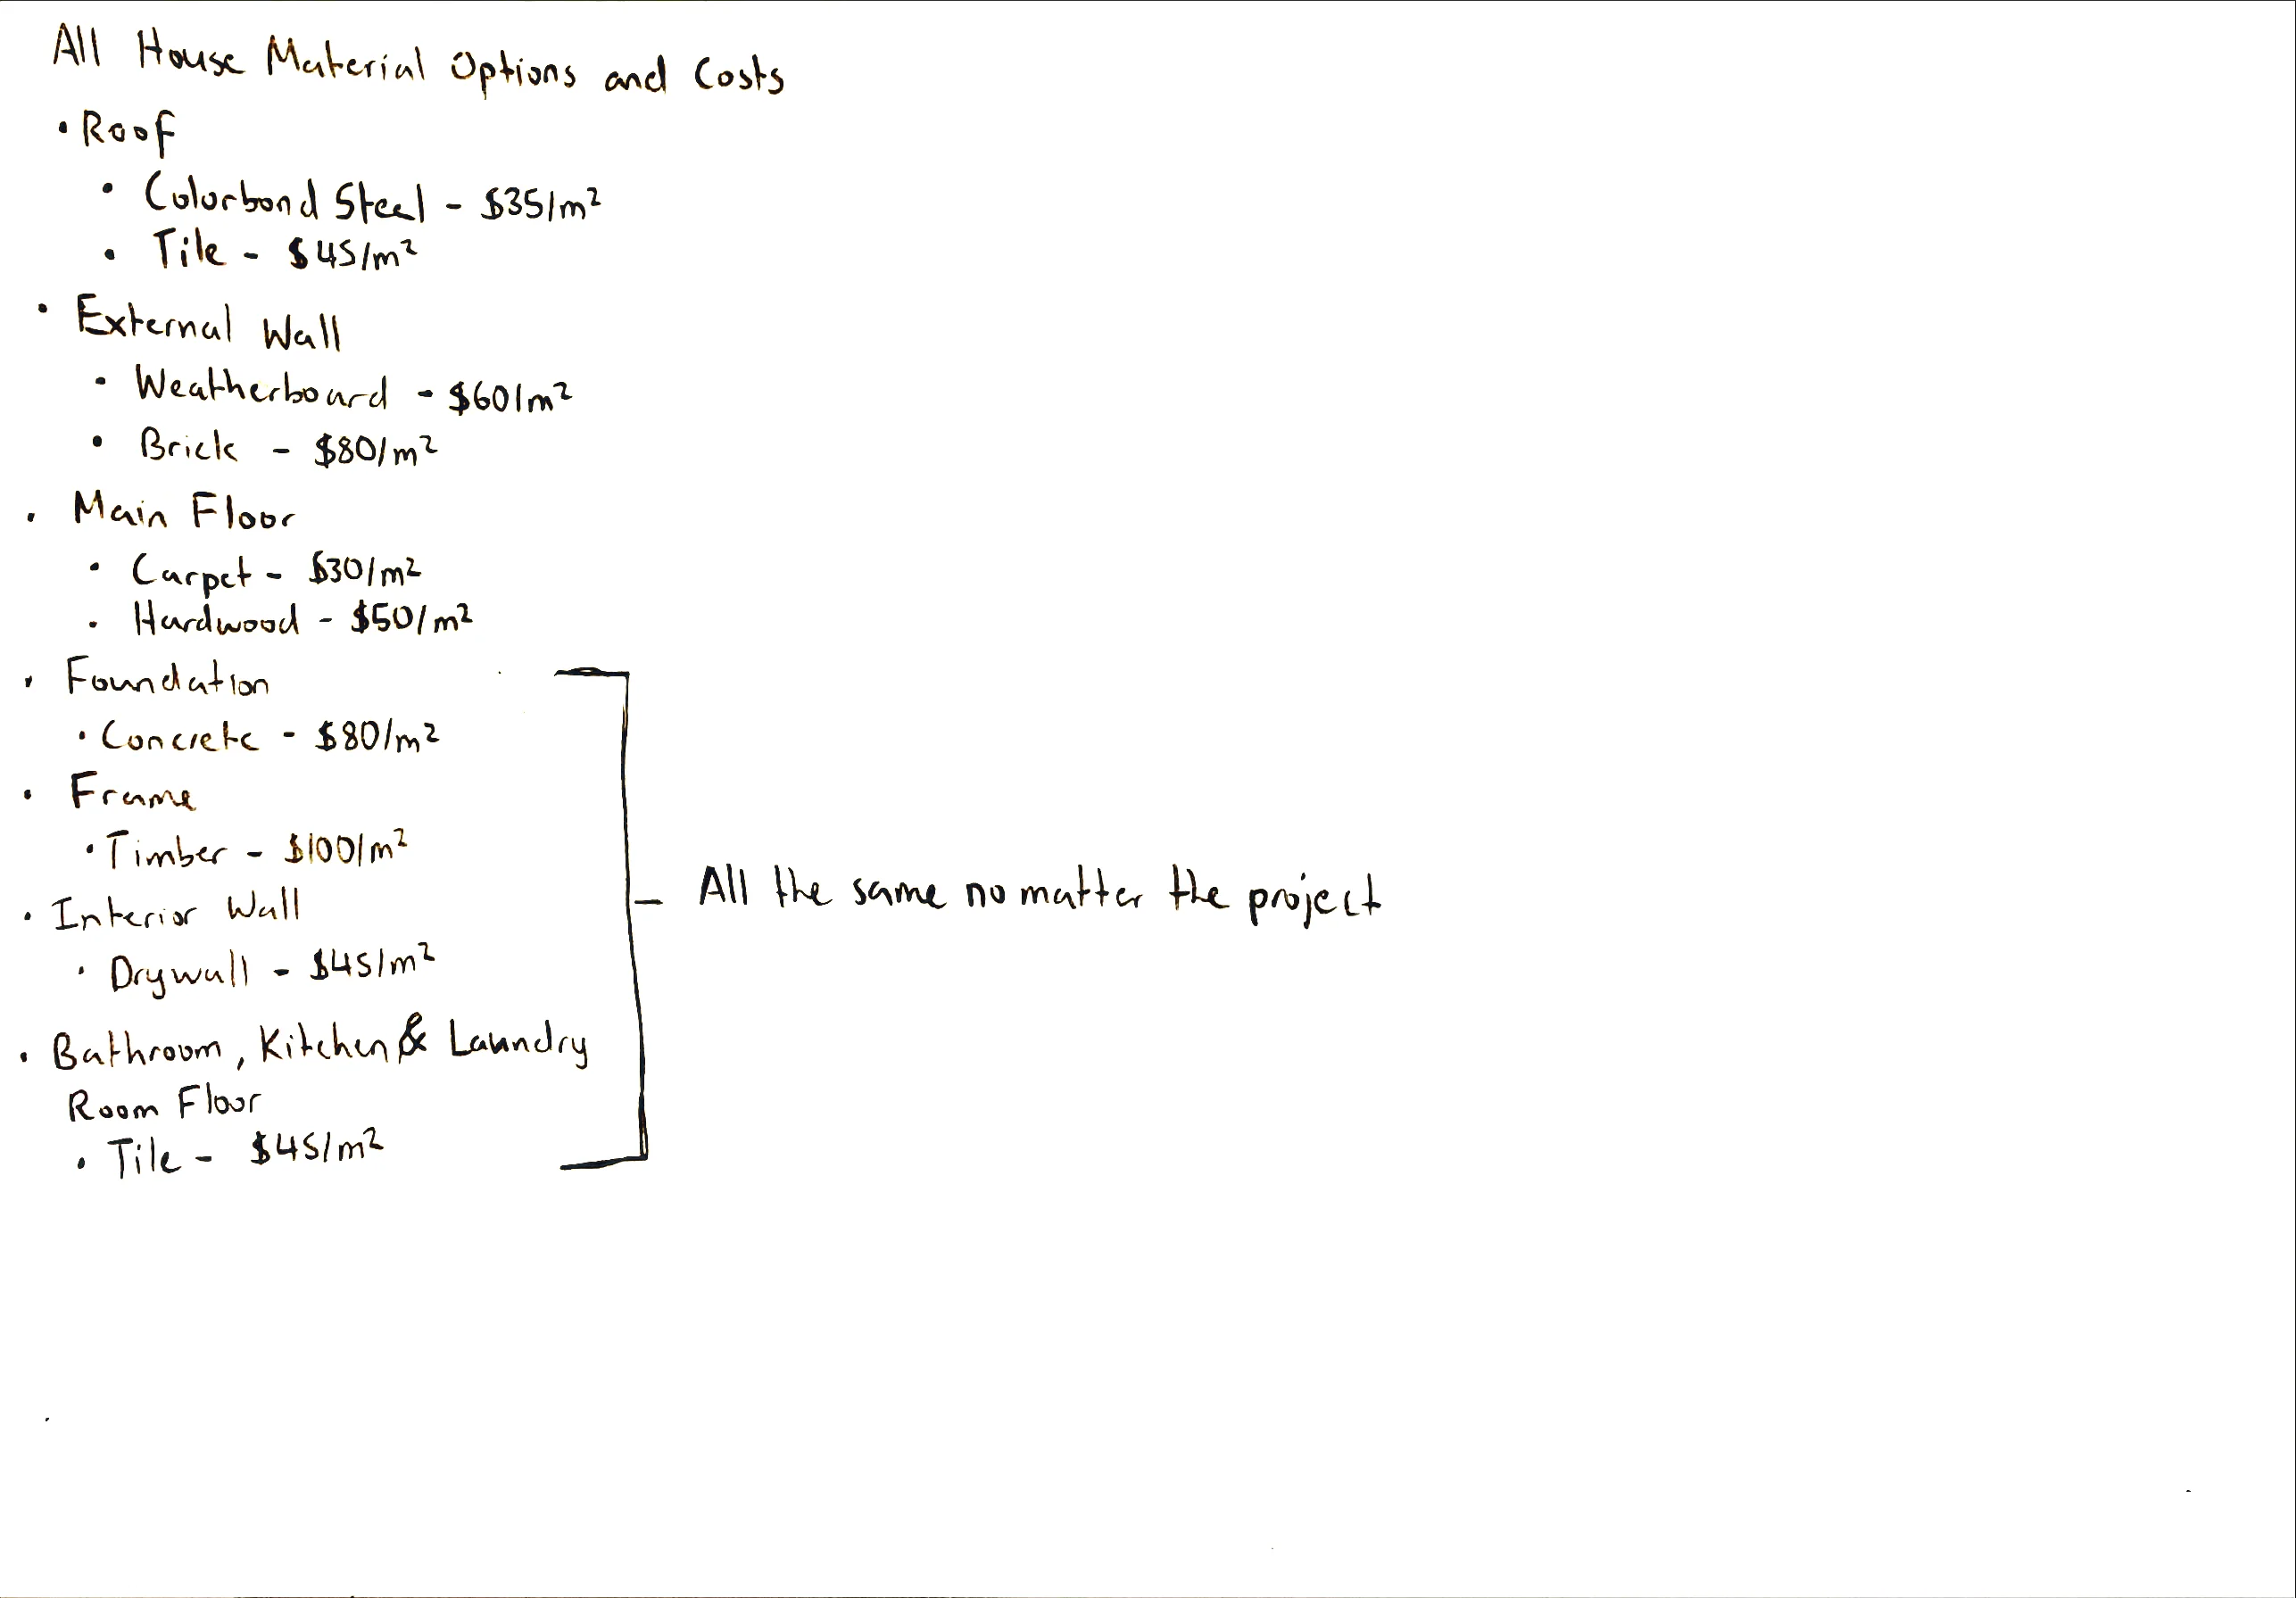 All House Material Options and Costs
• Roof
• Colorbond Steel - $35/m²
• Tile - $45/m²
• External Wall
• Weatherboard - $60/m²
• Brick - $80/m²
• Main Floor
• Carpet - $30/m²
• Hardwood - $50/m²
• Foundation
• Concrete - $80/m²
• Frame
• Timber - $100/m²
• Interior Wall
• Drywall - $45/m²
• Bathroom, Kitchen & Laundry
Room Floor
• Tile - $45/m²
All the same no matter the project